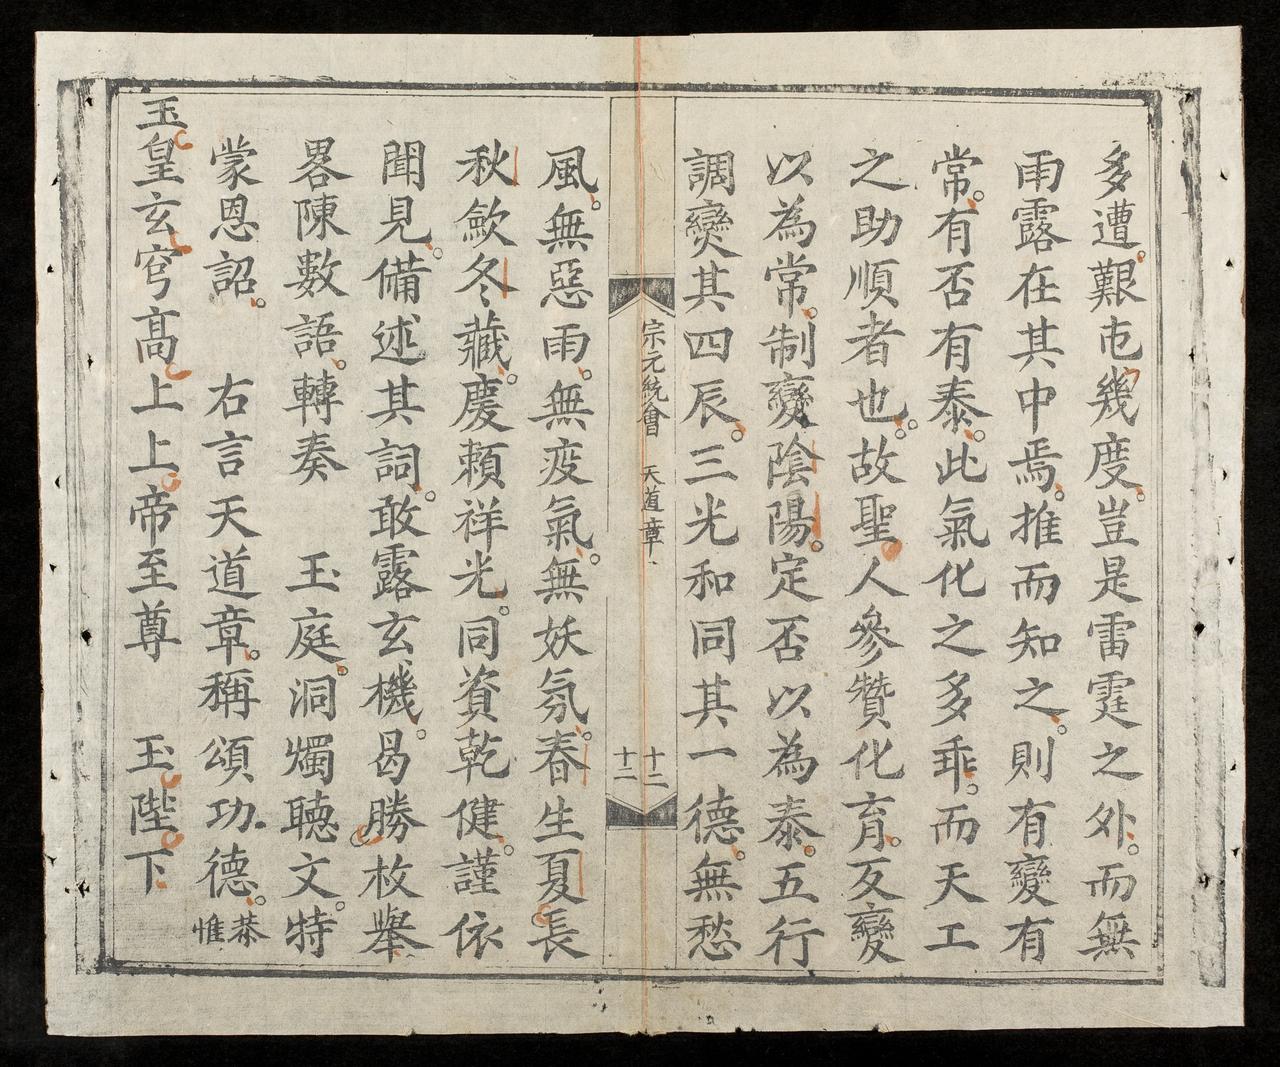 多遭艱屯幾度豈是雷霆之外而無
雨露在其中焉推而知之則有變有
常有否有泰此氣化之多乖而天工
之助順者也故聖人參贊化育互變
以為常制變陰陽定否以為泰五行
調燮其四辰三光和同其一德無愁
宗元統會 天道章 十二
十二
風無惡雨無疫氣無妖氛春生夏長
秋歛冬藏慶賴祥光同資乾健謹依
聞見備述其詞敢露玄機曷勝枚舉
畧陳數語轉奏 玉庭洞燭聽文特
蒙恩詔 右言天道章稱頌功德恭惟
玉皇玄穹高上上帝至尊 玉陛下